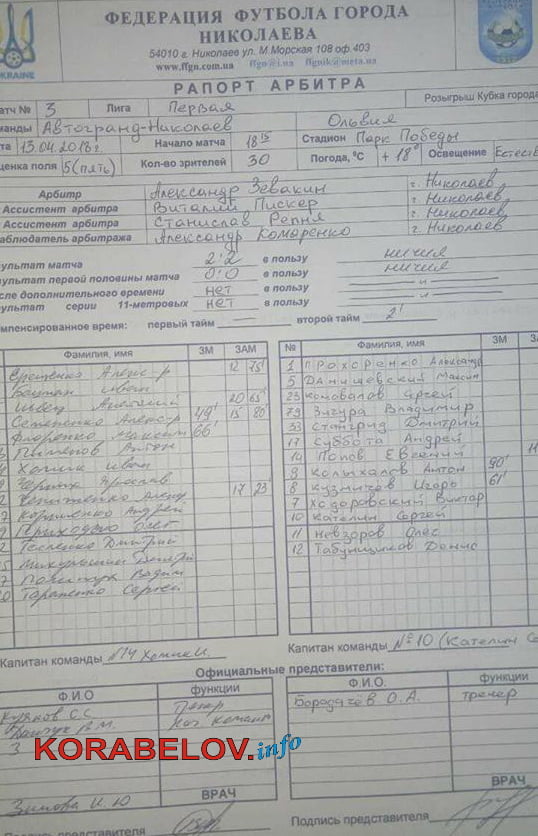 ФЕДЕРАЦИЯ ФУТБОЛА ГОРОДА
НИКОЛАЕВА
54010 г. Николаев ул. М.Морская 108 оф.403
www.ffgn.com.ua ffgn@i.ua ffgnik@meta.ua
UKRAINE
РАПОРТ АРБИТРА
атч № 3 Лига Первая Розыгрыш Кубка города
манды Автогранд-Николаев Ольвия
та 13.04.2018г. Начало матча 18 15 Стадион Парк Победы
ценка поля 5 (пять) Кол-во зрителей 30 Погода, °С +18° Освещение Естеств
Арбитр Александр Зевакин г. Николаев
Ассистент арбитра Виталий Пискер г. Николаев
Ассистент арбитра Станислав Репня г. Николаев
аблюдатель арбитража Александр Комаренко г. Николаев
зультат матча 2:2 в пользу ничия
зультат первой половины матча 0:0 в пользу ничия
сле дополнительного времени нет в пользу — и —
зультат серии 11-метровых нет в пользу — и —
мпенсированное время: первый тайм — второй тайм 2'
Фамилия, имя ЗМ ЗАМ
12 75'
Иван
20 65'
49' 15 80'
Флоренко Максим 66'
Пименов Антон
Хомик Иван
Черных Ярослав
17 23'
Андрей
Приходько Олег
Тесленко Дмитрий
Вадим
Тараненко Сергей
№ Фамилия, имя ЗМ ЗА
1 Прохоренко Александр
5 Данишевский Максим
23 Коновалов Сергей
79 Зигура Владимир
33 Дмитрий
17 Суббота Андрей
14 Попов Евгений
9 Колыхалов Антон 90'
8 Кузмичов Игорь 61'
7 Ходоровский Виктар
10 Кателин Сергей
11 Невзоров Олес
12 Табунщиков Денис
Капитан команды №14 Хомик И.
Капитан команды №10 (Кателин Се
Официальные представители:
Ф.И.О функции
С.С. Тренер
В.М. Нач команды
3
ВРАЧ
Зимова И.Ю
Ф.И.О. функции
Бородачёв О.А. тренер
ВРАЧ
KORABELOV.info
Подпись представителя
Подпись представителя